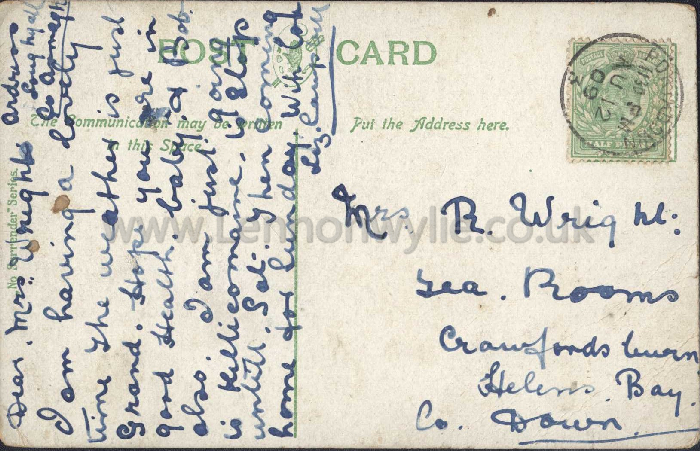 POST CARD
The Communication may be written
in this Space.
Put the Address here.
No Surrender Series.
HALF PENNY
www.LennonWylie.co.uk
Ardress
Loughgall
Co Armagh
Dear. Mrs. Wright
I am having a lovely
time The weather is just
Grand. Hope you are in
good Health. baby & Bob
also. I am just going
to Killicomaine. to Stop
untill. Sat. Then coming
home for Sunday. With Love
Liz. Campbell
Mrs. R. Wright:
Tea. Rooms
Crawfordsburn
Helens. Bay.
Co. Down